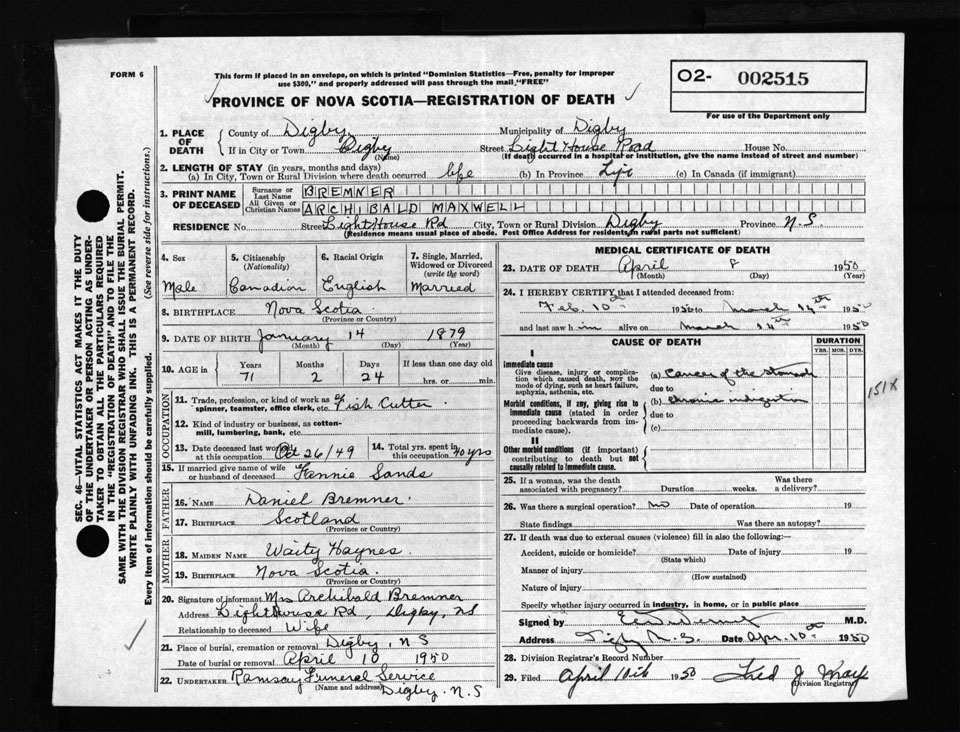 FORM 6
This form if placed in an envelope, on which is printed "Dominion Statistics—Free, penalty for improper
use $300," and properly addressed will pass through the mail "FREE"
PROVINCE OF NOVA SCOTIA—REGISTRATION OF DEATH
O2- 002515
For use of the Department only
1. PLACE OF DEATH { County of Digby Municipality of Digby
If in City or Town Digby (Name) Street Light House Road House No.
(If death occurred in a hospital or institution, give the name instead of street and number)
2. LENGTH OF STAY (in years, months and days)
(a) In City, Town or Rural Division where death occurred life (b) In Province Life (c) In Canada (if immigrant)
3. PRINT NAME OF DECEASED { Surname or Last Name BREMNER
All Given or Christian Names ARCHIBALD MAXWELL
RESIDENCE No. Street Light House Rd City, Town or Rural Division Digby Province N.S.
(Residence means usual place of abode. Post Office Address for residents in rural parts not sufficient)
4. Sex 5. Citizenship (Nationality) 6. Racial Origin 7. Single, Married, Widowed or Divorced (write the word)
Male Canadian English Married
8. BIRTHPLACE Nova Scotia
(Province or Country)
9. DATE OF BIRTH January 14 1879
(Month) (Day) (Year)
10. AGE in { Years Months Days If less than one day old
71 2 24 hrs. or min.
OCCUPATION
11. Trade, profession, or kind of work as
spinner, teamster, office clerk, etc. Fish Cutter
12. Kind of industry or business, as cotton-
mill, lumbering, bank, etc.
13. Date deceased last worked at this occupation Oct 26/49 14. Total yrs. spent in this occupation 40 yrs
15. If married give name of wife
or husband of deceased Fannie Sands
FATHER
16. NAME Daniel Bremner.
17. BIRTHPLACE Scotland
(Province or Country)
MOTHER
18. MAIDEN NAME Waity Haynes.
19. BIRTHPLACE Nova Scotia.
(Province or Country)
20. Signature of informant Mrs Archibald Bremner
Address Lighthouse Rd, Digby, NS
Relationship to deceased Wife
21. Place of burial, cremation or removal Digby, N S
Date of burial or removal April 10 1950
22. UNDERTAKER Ramsay Funeral Service
(Name and address) Digby. N.S
MEDICAL CERTIFICATE OF DEATH
23. DATE OF DEATH April 8 1950
(Month) (Day) (Year)
24. I HEREBY CERTIFY that I attended deceased from:
Feb. 10th 1950 to March 14th 1950
and last saw him alive on March 14th 1950
CAUSE OF DEATH DURATION
YRS. MOS. DYS.
I
Immediate cause
Give disease, injury or complica-
tion which caused death, NOT the
mode of dying, such as heart failure,
asphyxia, asthenia, etc.
(a) Cancer of the stomach
due to
151X
Morbid conditions, if any, giving rise to
immediate cause (stated in order
proceeding backwards from im-
mediate cause).
(b) Chronic indigestion
due to
(c)
II
Other morbid conditions (if important)
contributing to death but not
causally related to immediate cause.
25. If a woman, was the death
associated with pregnancy? Duration weeks. Was there a delivery?
26. Was there a surgical operation? no Date of operation 19
State findings Was there an autopsy?
27. If death was due to external causes (violence) fill in also the following:—
Accident, suicide or homicide? Date of injury 19
(State which)
Manner of injury
(How sustained)
Nature of injury
Specify whether injury occurred in industry, in home, or in public place
Signed by M.D.
Address Digby N.S. Date Apr. 10th 1950
28. Division Registrar's Record Number
29. Filed April 10th 1950 Fred J.
(Division Registrar)
SEC. 46—VITAL STATISTICS ACT MAKES IT THE DUTY
OF THE UNDERTAKER OR PERSON ACTING AS UNDER-
TAKER TO OBTAIN ALL THE PARTICULARS REQUIRED
IN THE "REGISTRATION OF DEATH" AND TO FILE THE
SAME WITH THE DIVISION REGISTRAR WHO SHALL ISSUE THE BURIAL PERMIT.
WRITE PLAINLY WITH UNFADING INK. THIS IS A PERMANENT RECORD.
Every item of information should be carefully supplied. (See reverse side for instructions.)